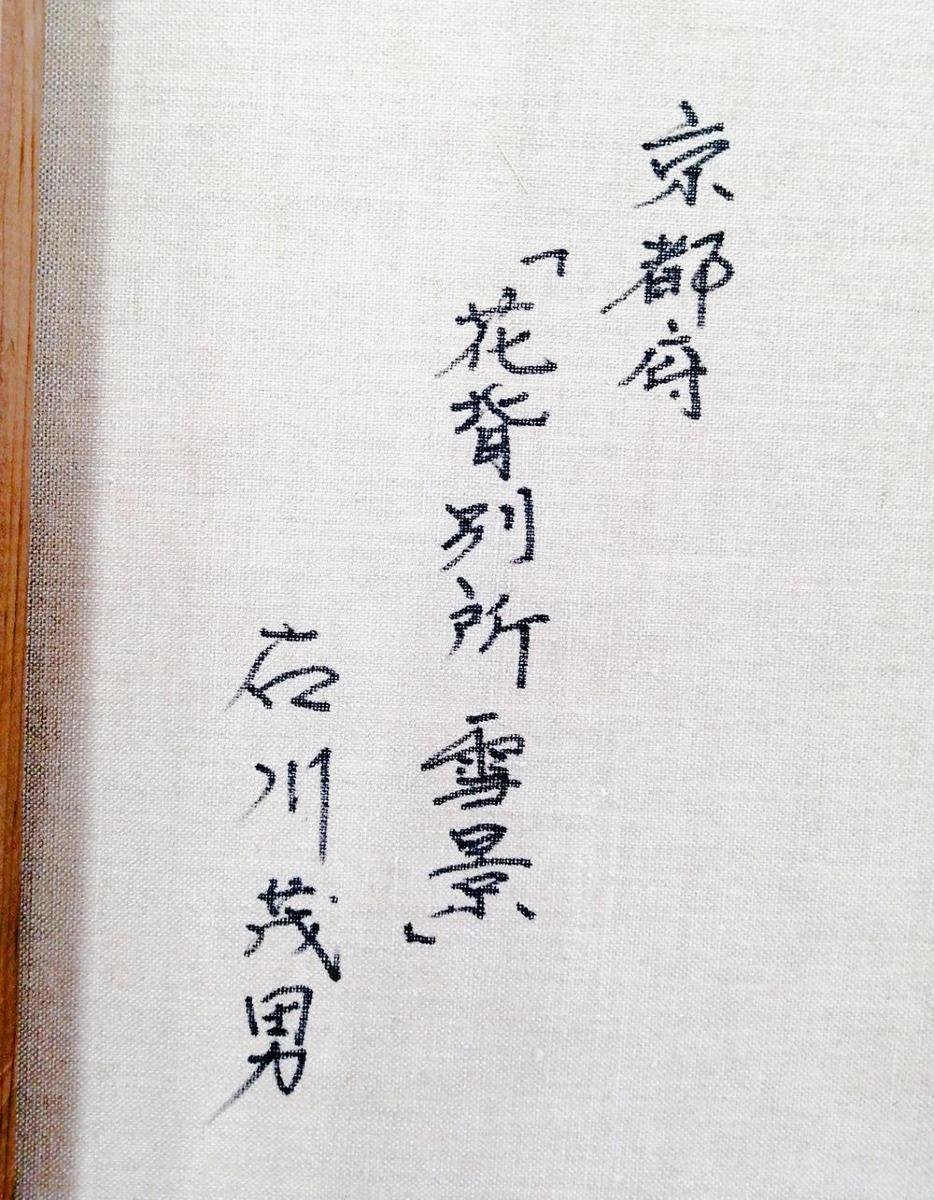 京都府
「花背別所 雪景」
石川茂男